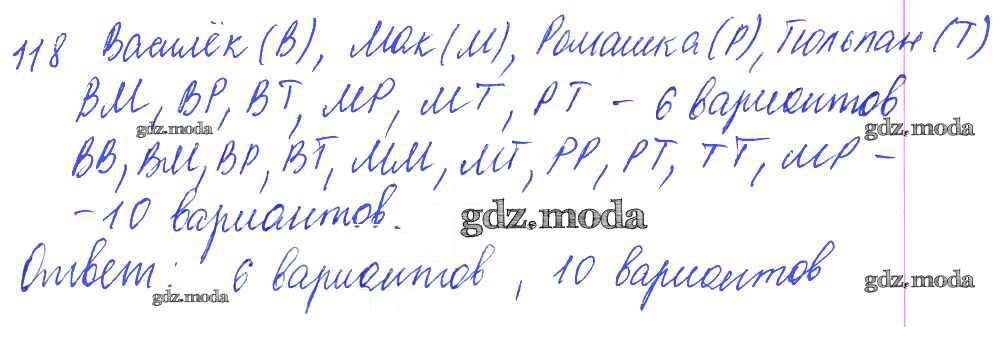 118 Василёк (В), Мак (М), Ромашка (Р), Тюльпан (Т)
ВМ, ВР, ВТ, МР, МТ, РТ - 6 вариантов
gdz.moda gdz.moda
ВВ, ВМ, ВР, ВТ, ММ, МТ, РР, РТ, ТТ, МР -
- 10 вариантов. gdz.moda
Ответ: 6 вариантов, 10 вариантов
gdz.moda gdz.moda